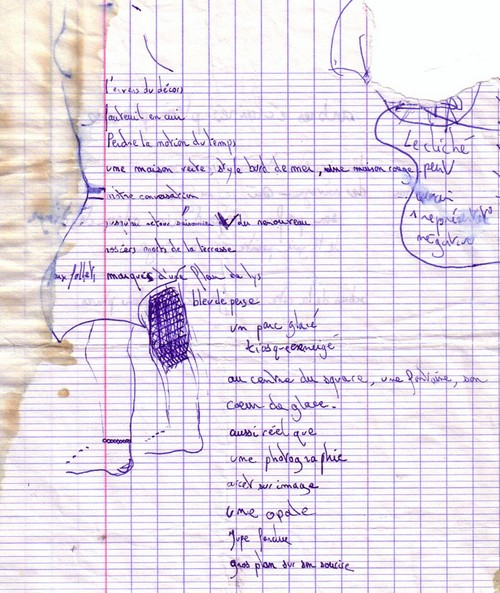 l'envers du décors
fauteuil en cuir
Perdre la notion du temps
une maison verte, style bord de mer, une maison rouge
notre conversation
du renouveau
rosiers morts de la terrasse
marqués d'une fleur de lys
bleu de perse
un parc glacé
kiosque enneigé
au centre du square, une fontaine, son
coeur de glace.
aussi réel que
une photographie
arrêt sur image
une opale
Jupe fendue
gros plan sur son sourire
Le cliché
peut
négative